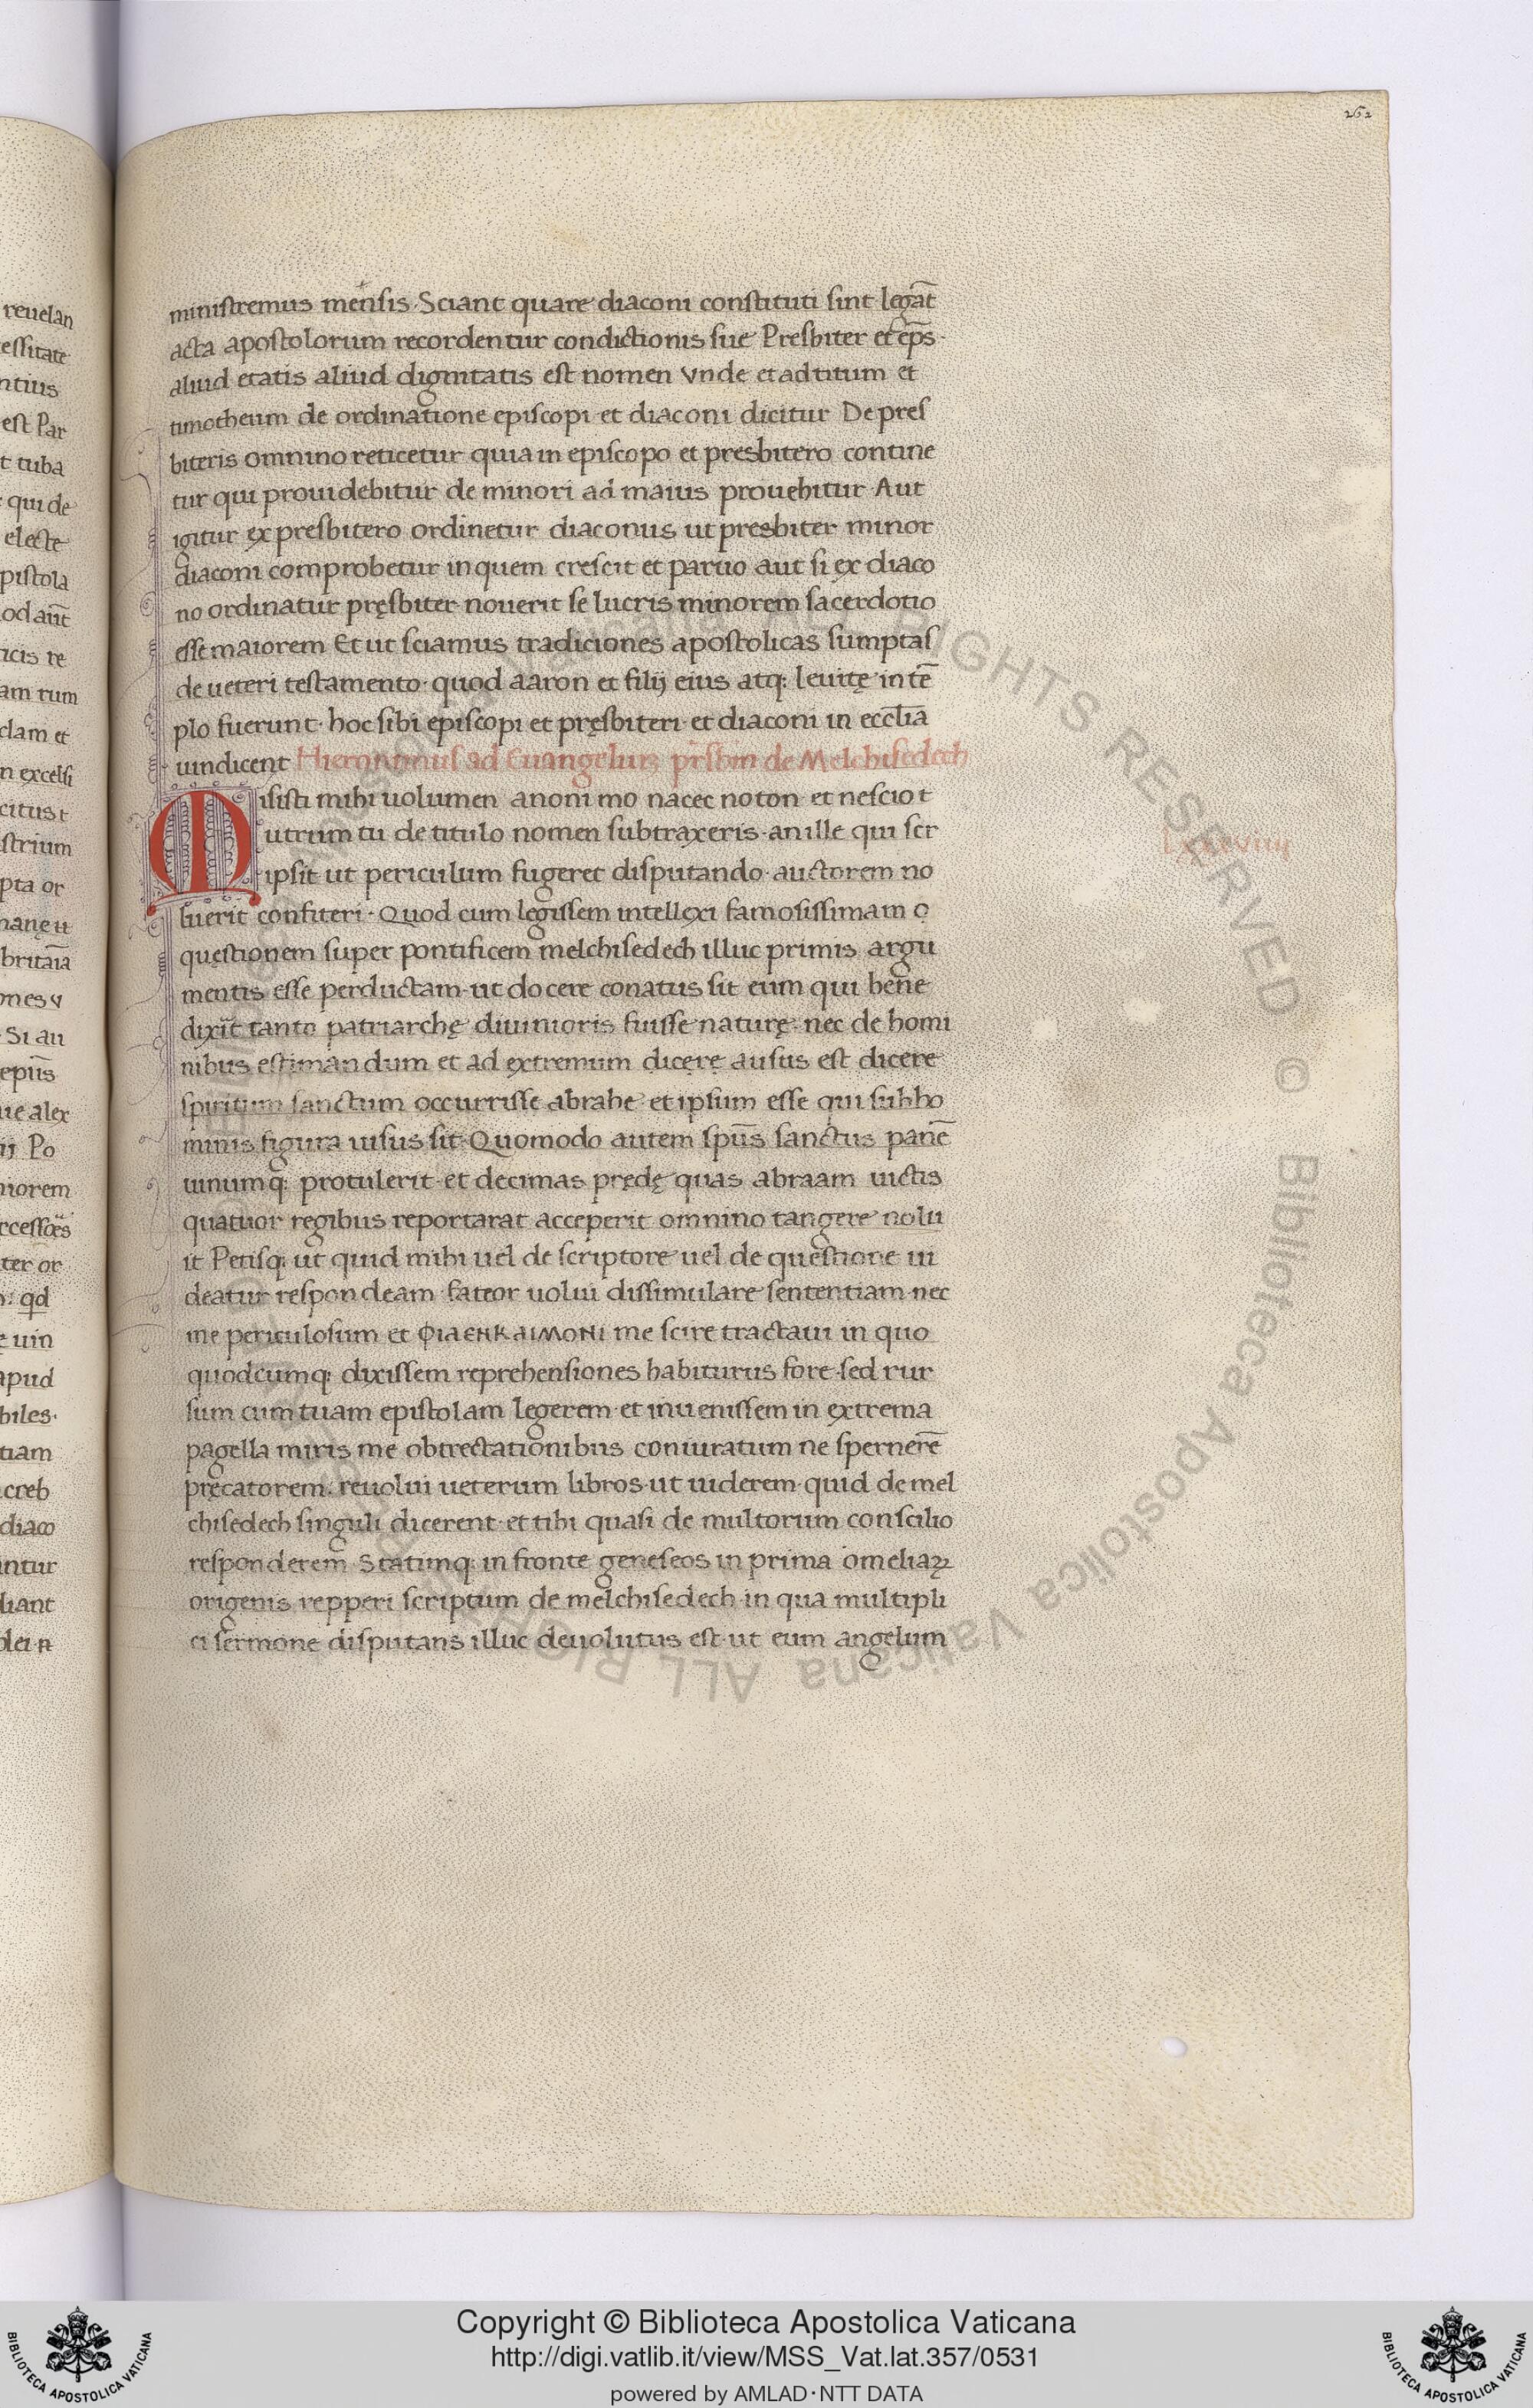 262
ministremus mensis · Sciant quare diaconi constituti sint legāt
acta apostolorum recordentur condictionis sue Presbiter et ep̄s ·
aliud etatis aliud dignitatis est nomen vnde et ad titum et
timotheum de ordinatione episcopi et diaconi dicitur De pres
biteris omnino reticetur quia in episcopo et presbitero contine
tur qui prouidebitur de minori ad maius prouehitur · Aut
igitur ex presbitero ordinetur diaconus ut presbiter minor
diaconi comprobetur in quem crescit et paruo aut si ex diaco
no ordinatur pręsbiter nouerit se lucris minorem sacerdotio
esse maiorem Et ut sciamus tradiciones apostolicas sumptas
de ueteri testamento · quod aaron et filij eius atq: leuitę in tē
plo fuerunt · hoc sibi episcopi et pręsbiteri · et diaconi in eccl̄ia
uindicent Hieronimus ad Euangelum pr̄sbm de Melchisedech
Misisti mihi uolumen anoni mo nacec noton · et nescio t
utrum tu de titulo nomen subtraxeris · an ille qui scr
lxxxviiij
ipsit ut periculum fugeret disputando · auctorem no
luerit confiteri · Quod cum legissem intellexi famosissimam q
quęstionem super pontificem melchisedech illuc primis argu
mentis esse perductam · ut docere conatus sit eum qui bene
dixit tanto patriarchę diuinioris fuisse naturę · nec de homi
nibus estimandum et ad extremum dicere ausus est dicere
spiritum sanctum occurrisse abrahe et ipsum esse qui sub ho
minis figura uisus sit · Quomodo autem sp̄us sanctus panē
uinumq: protulerit · et decimas prędę quas abraam uictis
quatuor regibus reportarat acceperit omnino tangere nolu
it Petisq: ut quid mihi uel de scriptore uel de questione ui
deatur respondeam · fateor uolui dissimulare sententiam nec
me periculosum et ΦιαενκαιΜονι me scire tractaui in quo
quodcumq: dixissem reprehensiones habiturus fore · sed rur
sum cum tuam epistolam legerem · et inuenissem in extrema
pagella miris me obtrectationibus coniuratum ne spernerē
pręcatorem · reuolui ueterum libros · ut uiderem · quid de mel
chisedech singuli dicerent · et tibi quasi de multorum conscilio
responderem Statimq: in fronte geneseos in prima omeliaꝝ
origenis repperi scriptum de melchisedech · in qua multipli
ci sermone disputans illuc deuolutus est · ut eum angelum
Copyright © Biblioteca Apostolica Vaticana
http://digi.vatlib.it/view/MSS_Vat.lat.357/0531
powered by AMLAD · NTT DATA